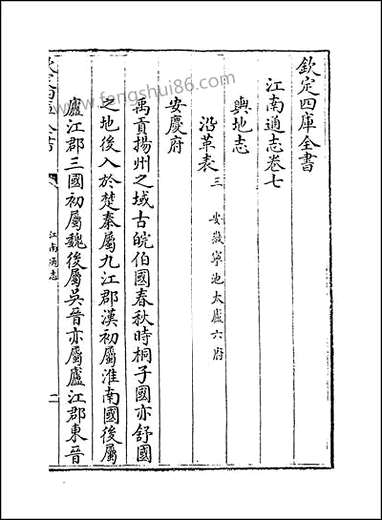 欽定四庫全書
江南通志卷七
輿地志
沿革表三 安徽寧池太廬六府
安慶府
禹貢揚州之域古皖伯國春秋時桐子國亦舒國
之地後入於楚秦屬九江郡漢初屬淮南國後屬
廬江郡三國初屬魏後屬吳晉亦屬廬江郡東晉
江南通志
一
www.fengshui86.com